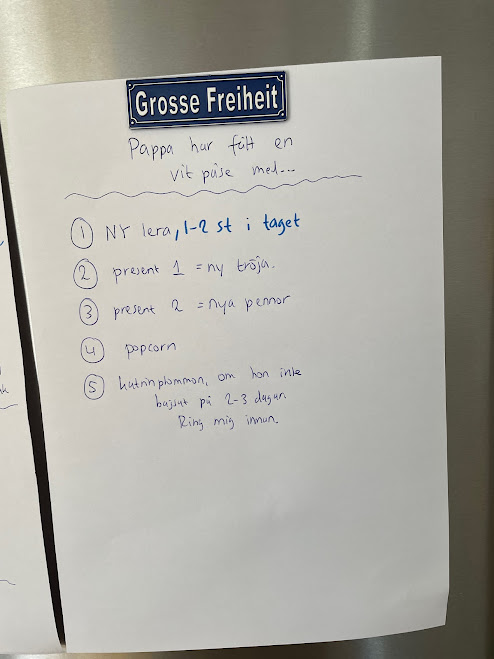 Grosse Freiheit
Pappa har fått en
vit påse med...
1 NY lera, 1-2 st i taget
2 present 1 = ny tröja.
3 present 2 = nya pennor
4 popcorn
5 katrinplommon, om hon inte
bajsat på 2-3 dagar.
Ring mig innan.